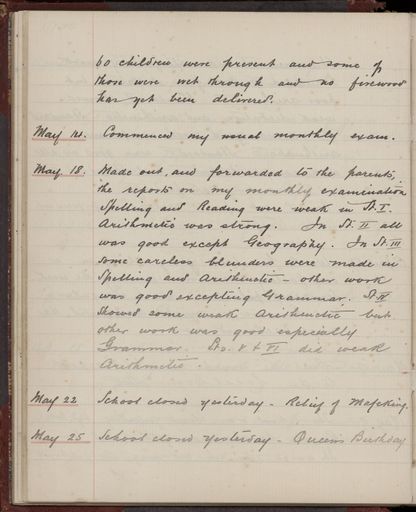 60 children were present and some of
those were wet through and no firewood
has yet been delivered.
May 14. Commenced my usual monthly exam.
May 18. Made out and forwarded to the parents,
the reports on my monthly examination
Spelling and Reading were weak in St. I.
Arithmetic was strong. In St. II all
was good except Geography. In St. III
some careless blunders were made in
Spelling and Arithmetic - other work
was good excepting Grammar. St IV
showed some weak Arithmetic but
other work was good especially
Grammar. Sts. V & VI did weak
Arithmetic.
May 22 School closed yesterday - Relief of Mafeking.
May 25 School closed yesterday - Queens Birthday